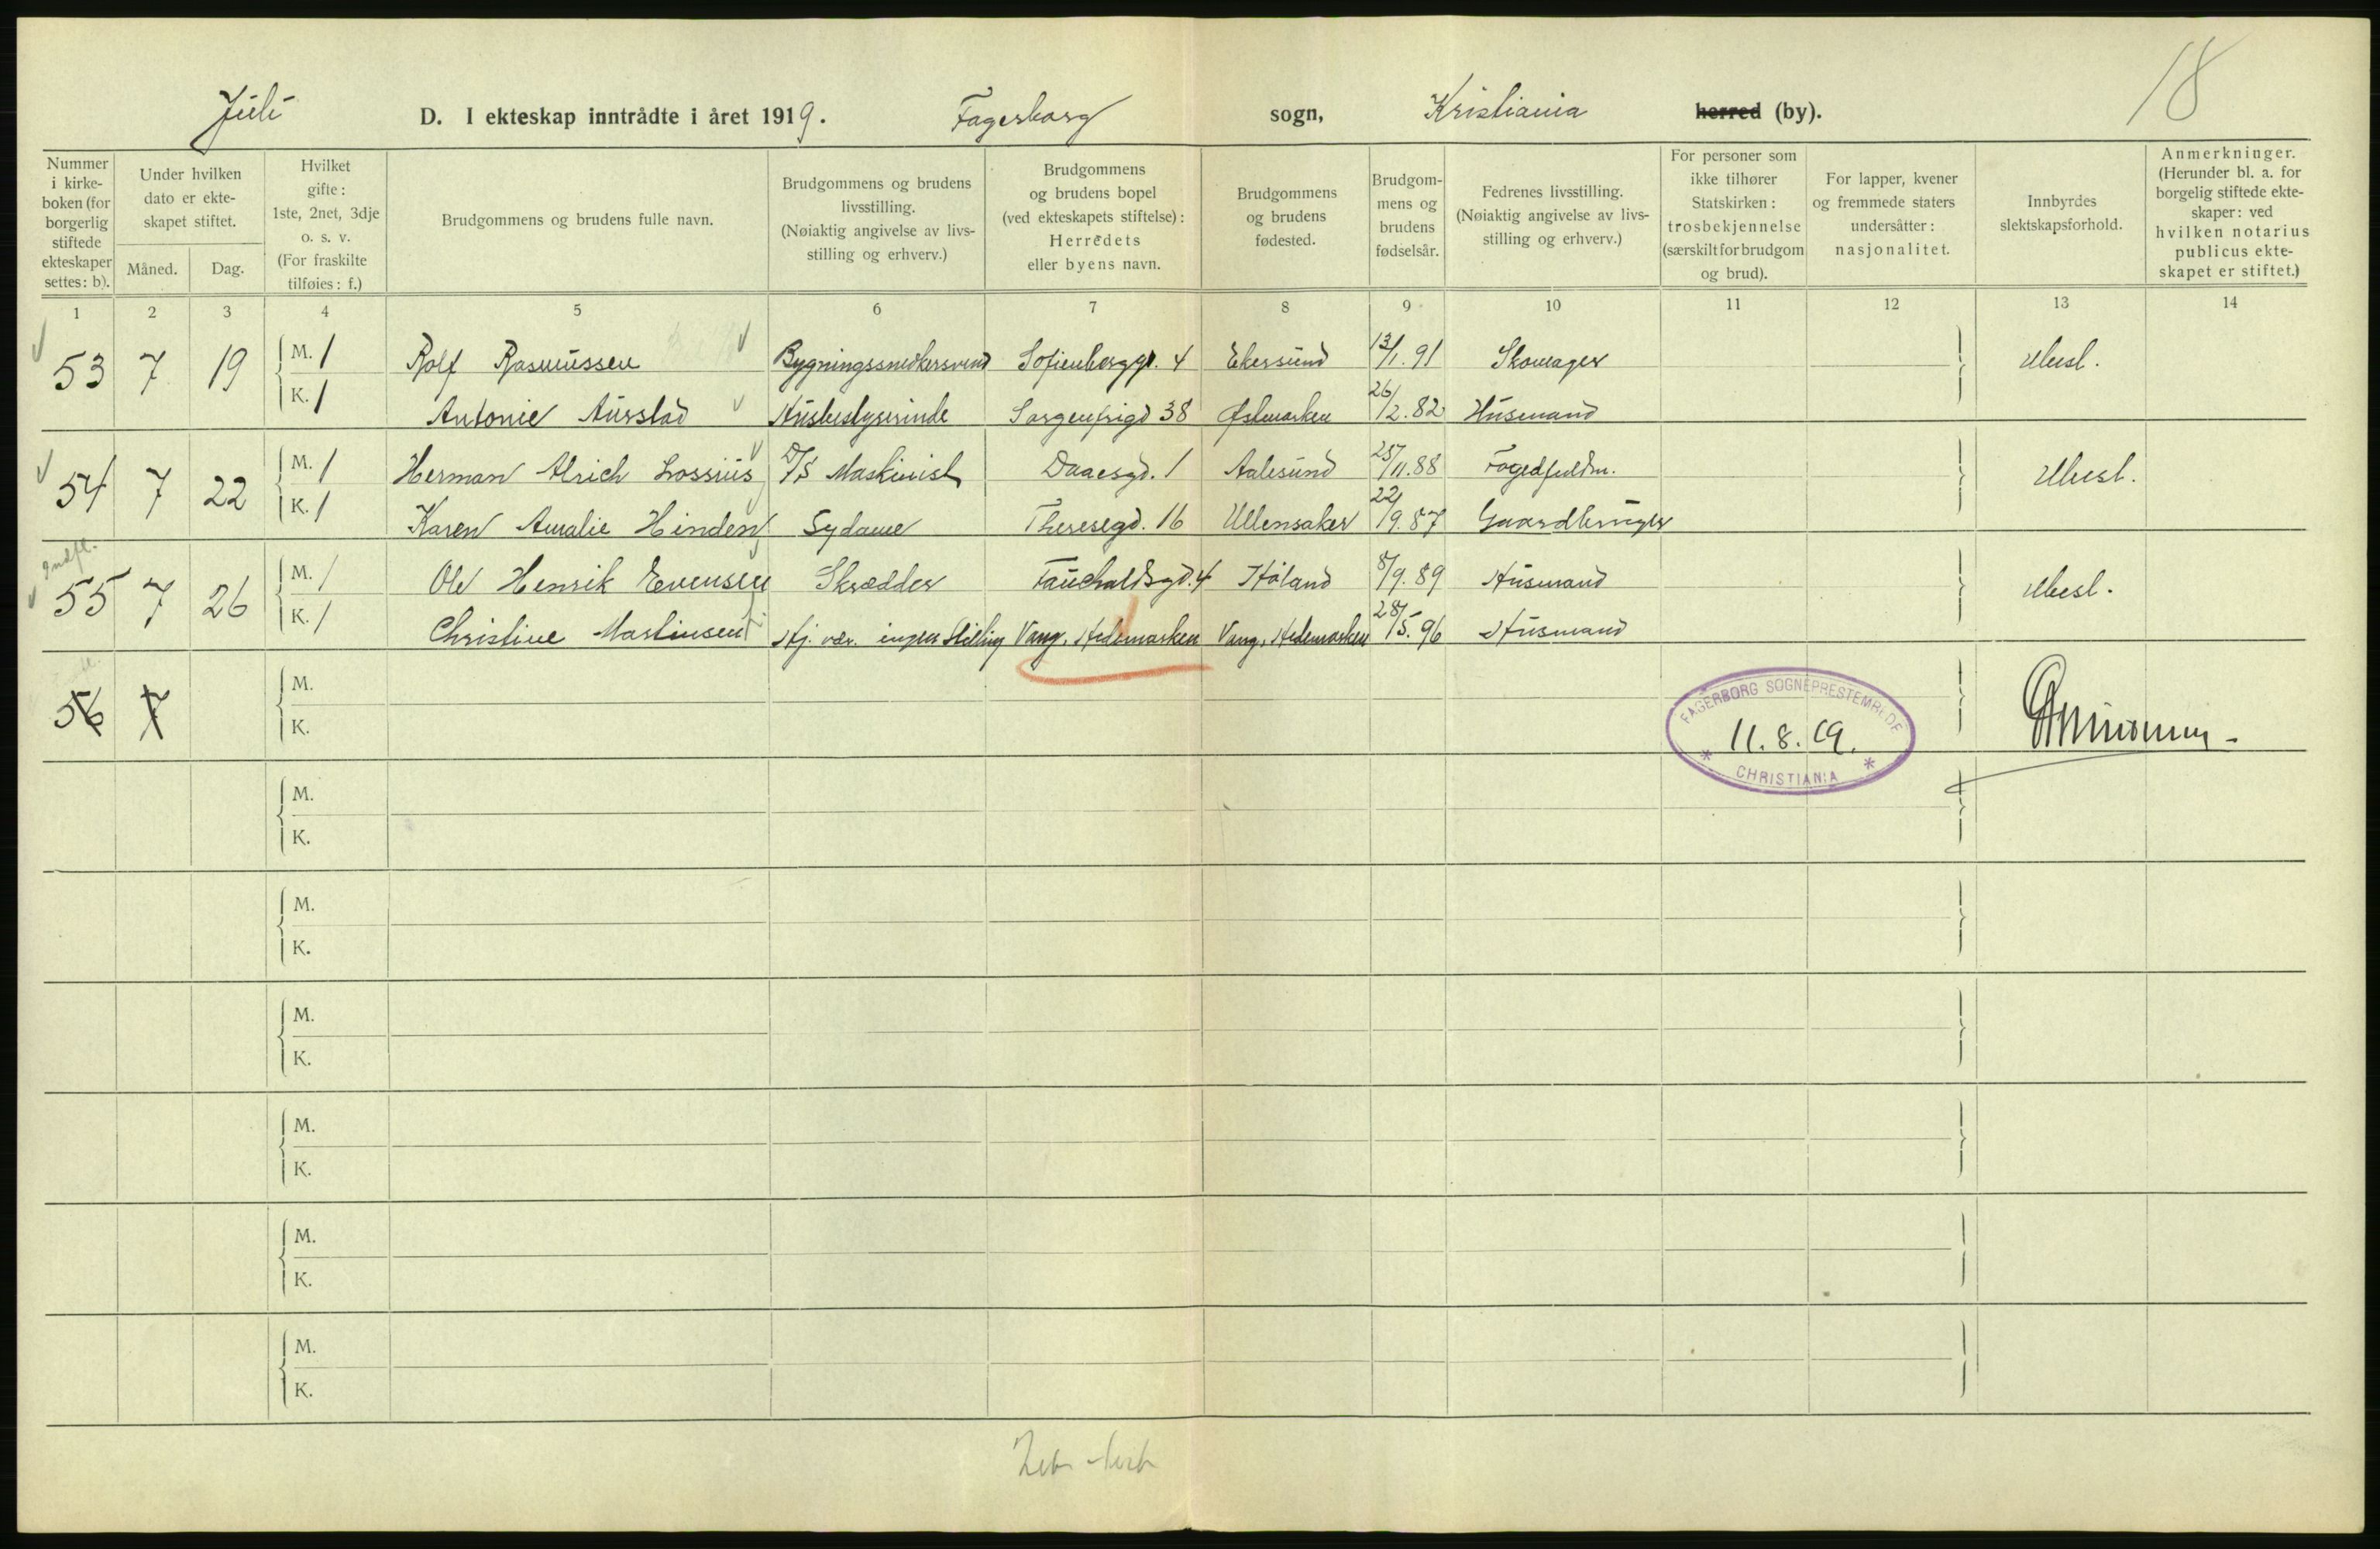 Juli D. I ekteskap inntrådte i året 1919. Fagerborg sogn, Kristiania herred (by). 18
Nummer i kirkeboken (for borgerlig stiftede ekteskaper settes: b).
Under hvilken dato er ekteskapet stiftet.
Måned.
Dag.
Hvilket gifte: 1ste, 2net, 3dje o. s. v. (For fraskilte tilføies: f.)
Brudgommens og brudens fulle navn.
Brudgommens og brudens livsstilling. (Nøiaktig angivelse av livsstilling og erhverv.)
Brudgommens og brudens bopel (ved ekteskapets stiftelse): Herredets eller byens navn.
Brudgommens og brudens fødested.
Brudgommens og brudens fødselsår.
Fedrenes livsstilling. (Nøiaktig angivelse av livsstilling og erhverv.)
For personer som ikke tilhører Statskirken: trosbekjennelse (særskilt for brudgom og brud).
For lapper, kvener og fremmede staters undersåtter: nasjonalitet.
Innbyrdes slektskapsforhold.
Anmerkninger. (Herunder bl. a. for borgelig stiftede ekteskaper: ved hvilken notarius publicus ekteskapet er stiftet.)
1 2 3 4 5 6 7 8 9 10 11 12 13 14
53 7 19 M. 1 Rolf Rasmussen Bygningssnedkersvend Sofienberggt. 4 Ekersund 13/1. 91 Skomager Ubesl.
K. 1 Antonie Aurstad Husbestyrerinde Sorgenfrigd 38 Østmarken 26/2. 82 Husmand
54 7 22 M. 1 Herman Ulrich Lossius D/S Maskinist Daaesgd. 1 Aalesund 25/11. 88 Fogedfuldm. Ubesl.
K. 1 Karen Amalie Hinden Sydame Theresegd. 16 Ullensaker 22/9. 87 Gaardbruger
Indfl.
55 7 26 M. 1 Ole Henrik Evensen Skrædder Fauchaldsgd. 4 Høland 8/9. 89 Husmand Ubesl.
K. 1 Christine Martinsen Hj. vær. ingen Stilling Vang, Hedemarken Vang, Hedemarken 28/5. 96 Husmand
56 7 M.
K.
FAGERBORG SOGNEPRESTEMBEDE
11. 8. 19.
* CHRISTIANIA *
M.
K.
M.
K.
M.
K.
M.
K.
M.
K.
M.
K.